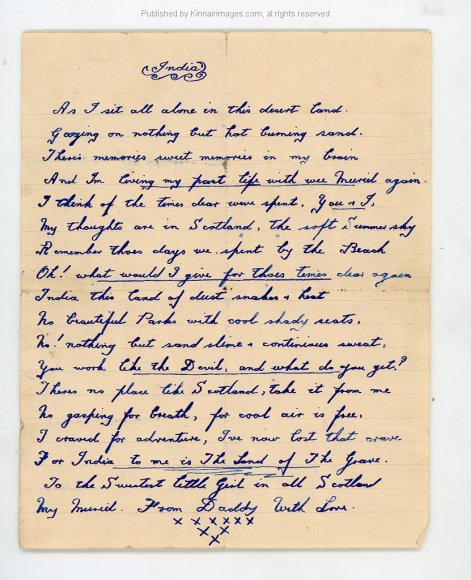 Published by Kinnairimages.com, all rights reserved.
India
As I sit all alone in this desert land.
Gazing on nothing but hot burning sand.
There's memories sweet memories in my brain
And I'm living my past life with wee Muriel again.
I think of the times dear weve spent, You & I,
My thoughts are in Scotland, the soft Summer sky
Remember those days we spent by the Beach
Oh! what would I give for those times dear again
India this land of dust snakes & heat
No beautiful Parks with cool shady seats,
No! nothing but sand slime & continious sweat,
You work like the Devil, and what do you get?
Theres no place like Scotland, take it from me
No gasping for breath, for cool air is free,
I craved for adventure, I've now lost that crave.
For India to me is The Land of The Grave.
To the Sweetest little Girl in all Scotland
My Muriel. From Daddy With Love.
x x x x x x
x x x
x